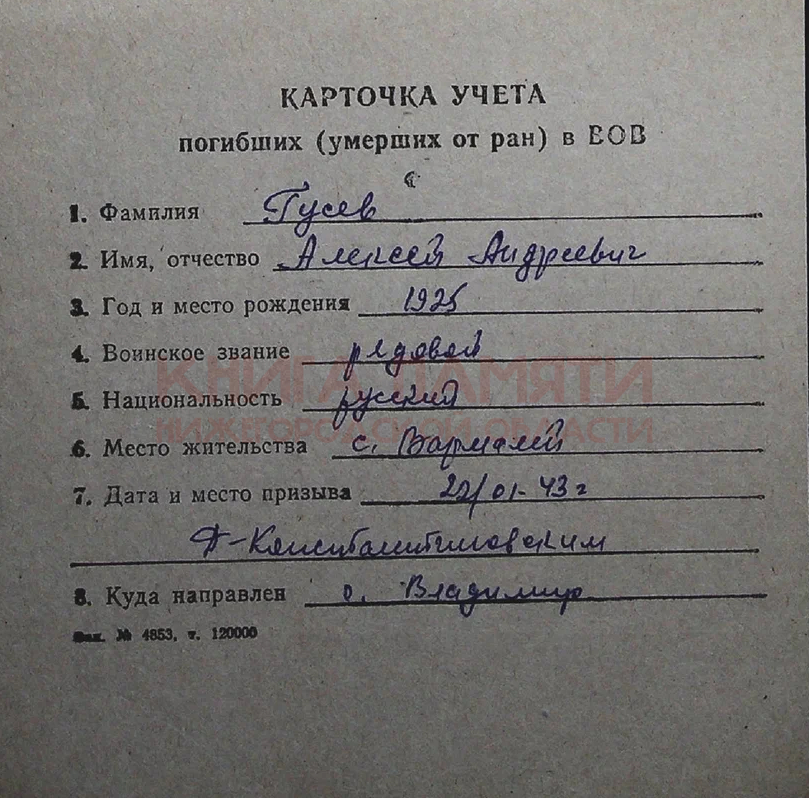 КАРТОЧКА УЧЕТА
погибших (умерших от ран) в ВОВ
1. Фамилия Гусев
2. Имя, отчество Алексей Андреевич
3. Год и место рождения 1925
4. Воинское звание рядовой
КНИГА ПАМЯТИ
5. Национальность русский
НИЖЕГОРОДСКОЙ ОБЛАСТИ
6. Место жительства с. Вармалей
7. Дата и место призыва 22/01-43 г
Д-Константиновским
8. Куда направлен г. Владимир
Зак. № 4853, т. 120000